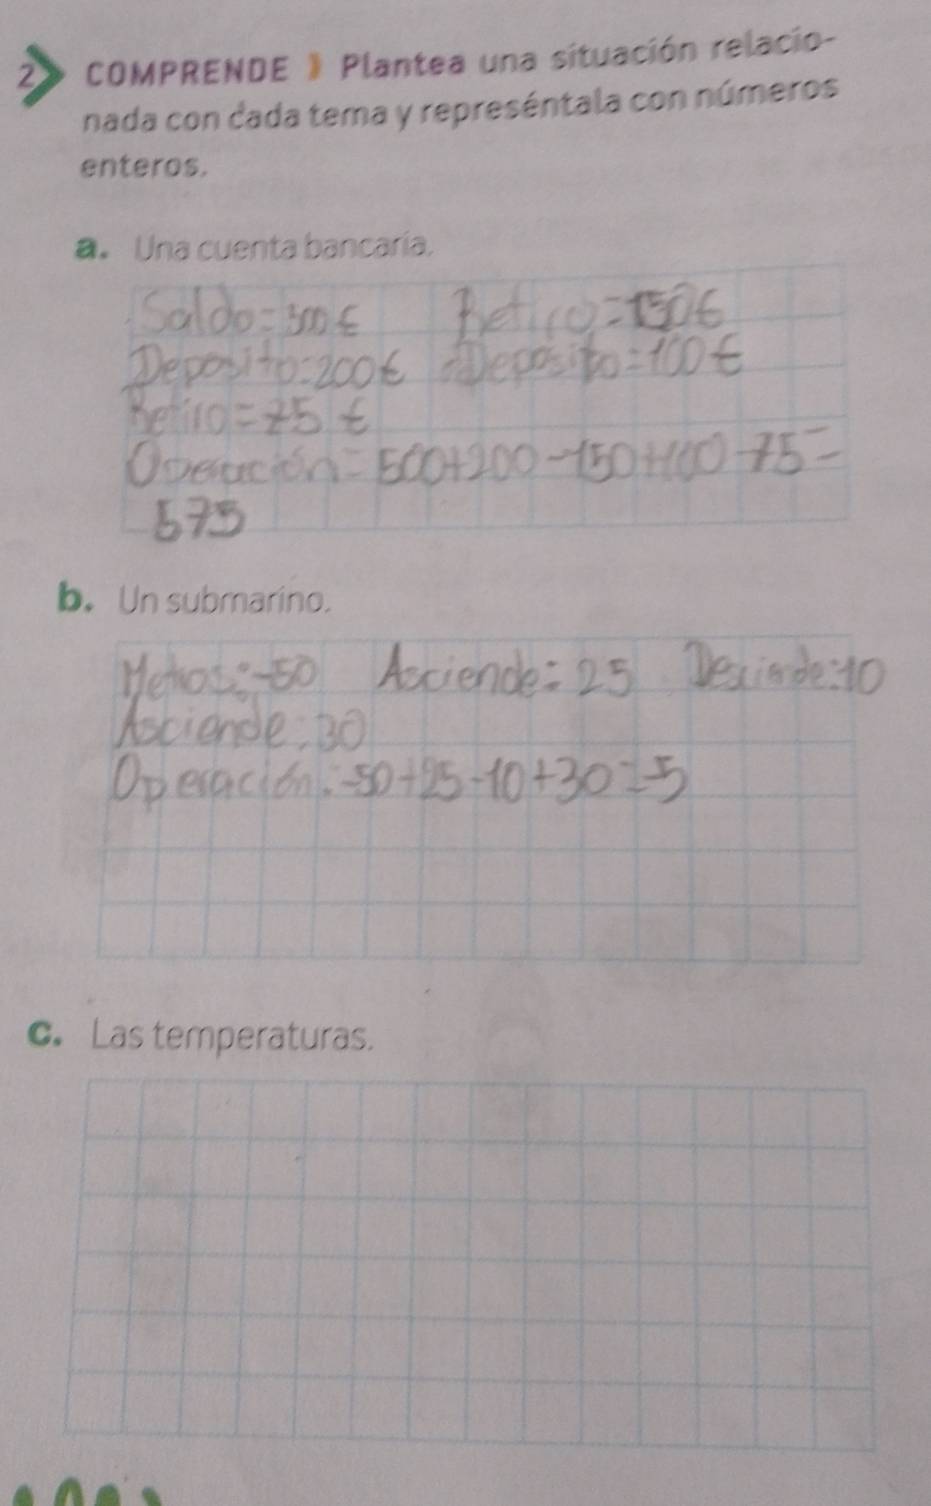 2 COMPRENDE Plantea una situación relacio-
nada con cada tema y represéntala con números
enteros.
a. Una cuenta bancaria.
Saldo=500€ Retiro=150€
Deposito=200€ Deposito=100€
Retiro=75€
Operación=500+200-150+100-75=
575
b. Un submarino.
Metros:-50 Asciende: 25 Desciende:10
Asciende: 30
Operación:-50+25-10+30=-5
c. Las temperaturas.